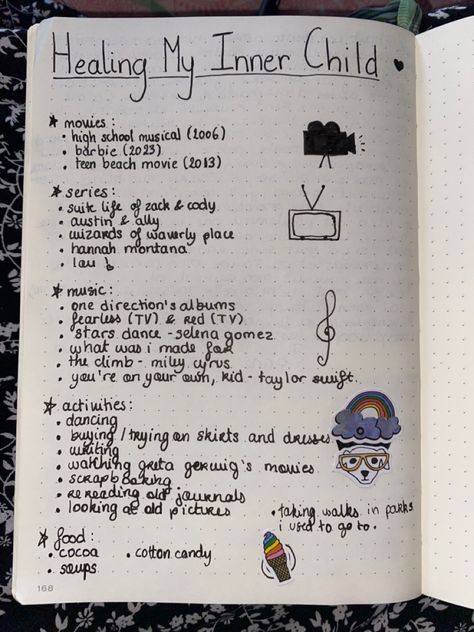 Healing My Inner Child
* movies:
• high school musical (2006)
• barbie (2023)
• teen beach movie (2013)
* series:
• suite life of zack & cody
• austin & ally
• wizards of waverly place
• hannah montana
* music:
• one direction's albums
• fearless (TV) & red (TV)
• stars dance - selena gomez
• what was i made for
• the climb - miley cyrus
• you're on your own, kid - taylor swift.
* activities:
• dancing
• buying / trying on skirts and dresses
• writing
• watching greta gerwig's movies
• scrapbooking
• rereading old journals
• looking at old pictures
• taking walks in parks
i used to go to.
* food:
• cocoa • cotton candy
• soups
168